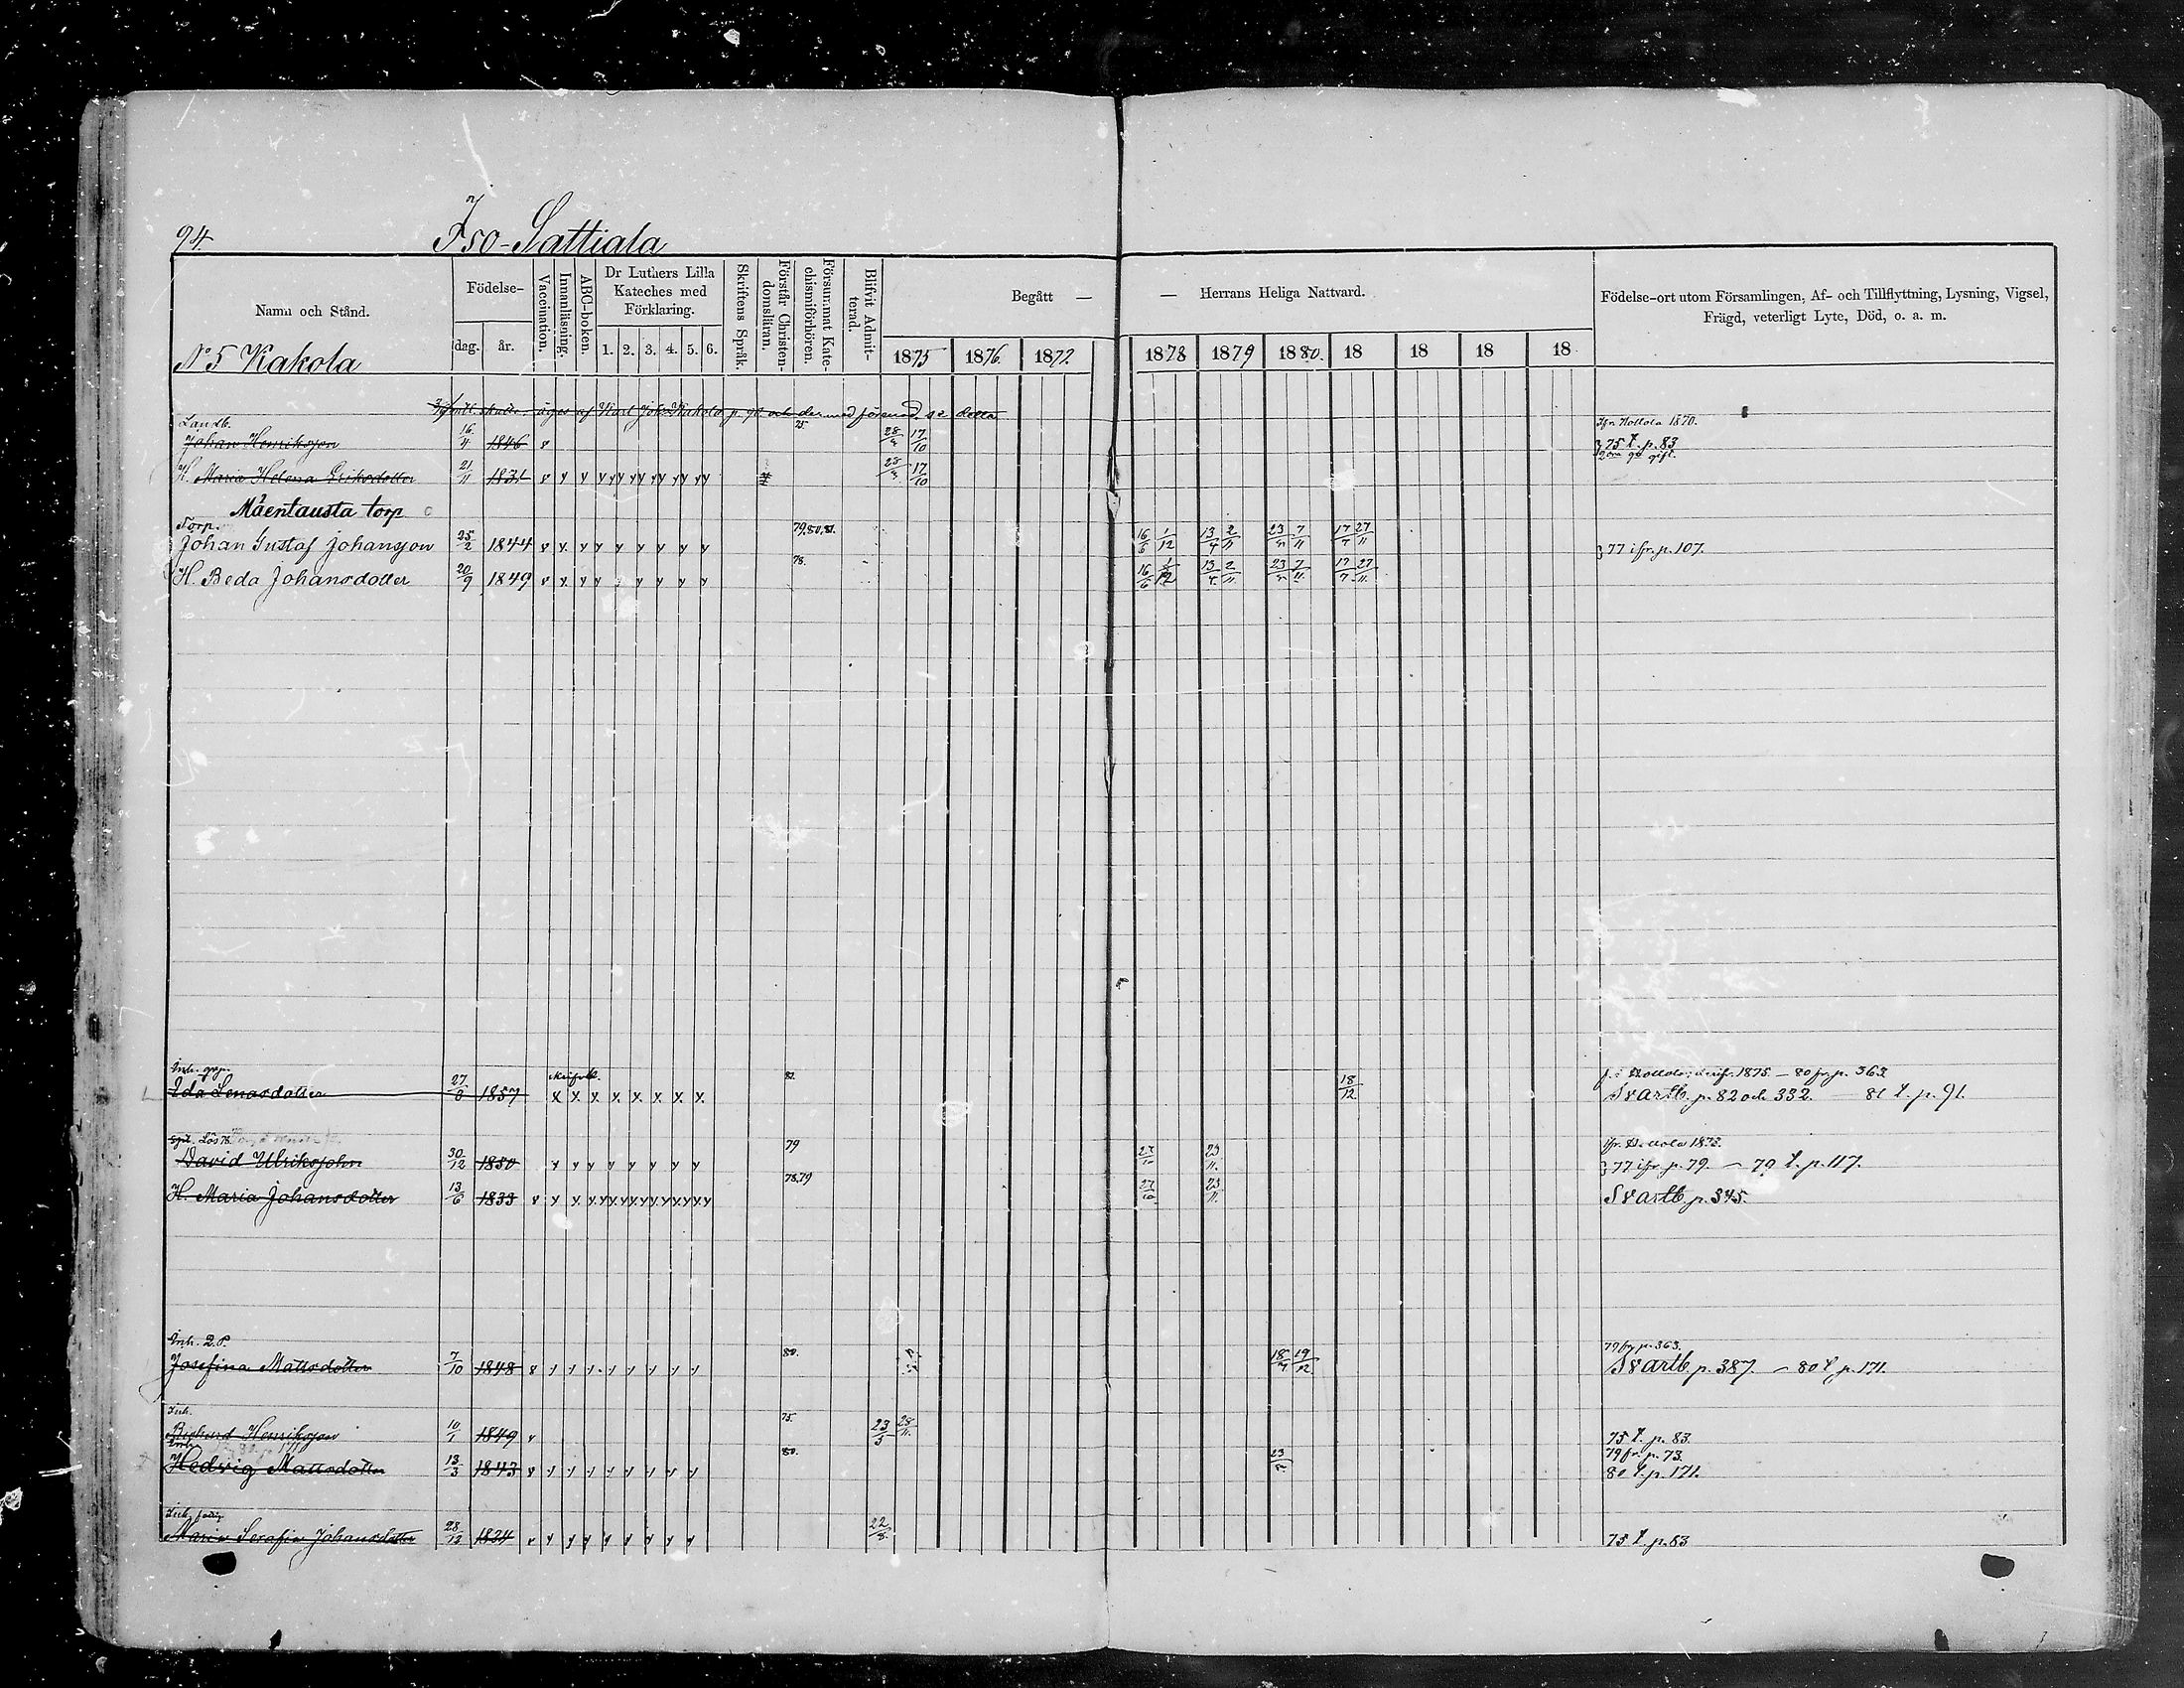 94.
Iso-Sattiala
Namn och Stånd.
Födelse-
dag.
år.
Vaccination.
Innanläsning.
ABC-boken.
Dr Luthers Lilla
Kateches med
Förklaring.
1. 2. 3. 4. 5. 6.
Skriftens Språk.
Förstår Christen-
domsläran.
Försummat Kate-
chismiförhören.
Blifvit Admit-
terad.
Begått —
— Herrans Heliga Nattvard.
Födelse-ort utom Församlingen, Af- och Tillflyttning, Lysning, Vigsel,
Frägd, veterligt Lyte, Död, o. a. m.
No 5 Kakola
1875 1876. 1877. 1878 1879 1880. 18 18 18 18
äges af Karl Joh. Kakola p. 90 och
Landb.
75.
Ifr. Hollola 1870.
Johan Henriksson 16/4 1846 v 28/3 17/10 75 t. p. 83
2dra gg gift.
H. Maria Helena Eriksdotter 21/11 1831 v y y yy yy yy yy yy 28/3 17/10
Mäentausta torp
Torp. 79,80,81.
Johan Gustaf Johansson 25/2 1844 v y y y y y y y y 16/6 1/12 13/4 2/11 23/5 7/11 17/7 27/11 77 ifr. p. 107.
78.
H. Beda Johansdotter 20/9 1849 v y y y y y y y 16/6 1/12 13/4 2/11 23/5 7/11 17/7 27/11
81.
f. i Hollola; derifr. 1875 — 80 fr. p. 363
Ida Lenasdotter 27/8 1857 x x x x x x x x 18/12 Svartb. p. 82 och 332. — 81 t. p. 91.
79
ifr. Hollola 1873.
David Ulriksson 30/12 1850 y y y y y y y y 27/10 23/11 77 ifr. p. 79. — 79 t. p. 117.
78,79
H. Maria Johansdotter 13/6 1833 v y y yy yy yy yy yy 27/10 23/11 Svartb. p. 345.
Inh. D.P.
80.
79 fr. p. 363.
Josefina Mattsdotter 7/10 1848 v y y y y y y y y 18/7 19/12 Svartb. p. 387. — 80 t. p. 171.
Inh.
75.
Henriksson 10/1 1849 v 23/5 28/11 75 t. p. 83.
Inh.
80.
79 fr. p. 73.
Hedvig Mattsdotter 13/3 1843 v y y y y y y y y 23/5 80 t. p. 171.
Inh.
Maria Serafia Johansdotter 28/12 1824 v y y y y y y y y 22/8 75 t. p. 83